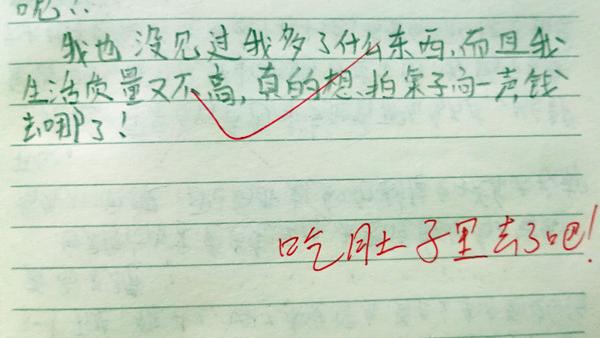 呢∴
我也没见过我多了什么东西,而且我
生活质量又不高,真的想、拍桌子问一声钱
去哪了!
吃肚子里去了吧!